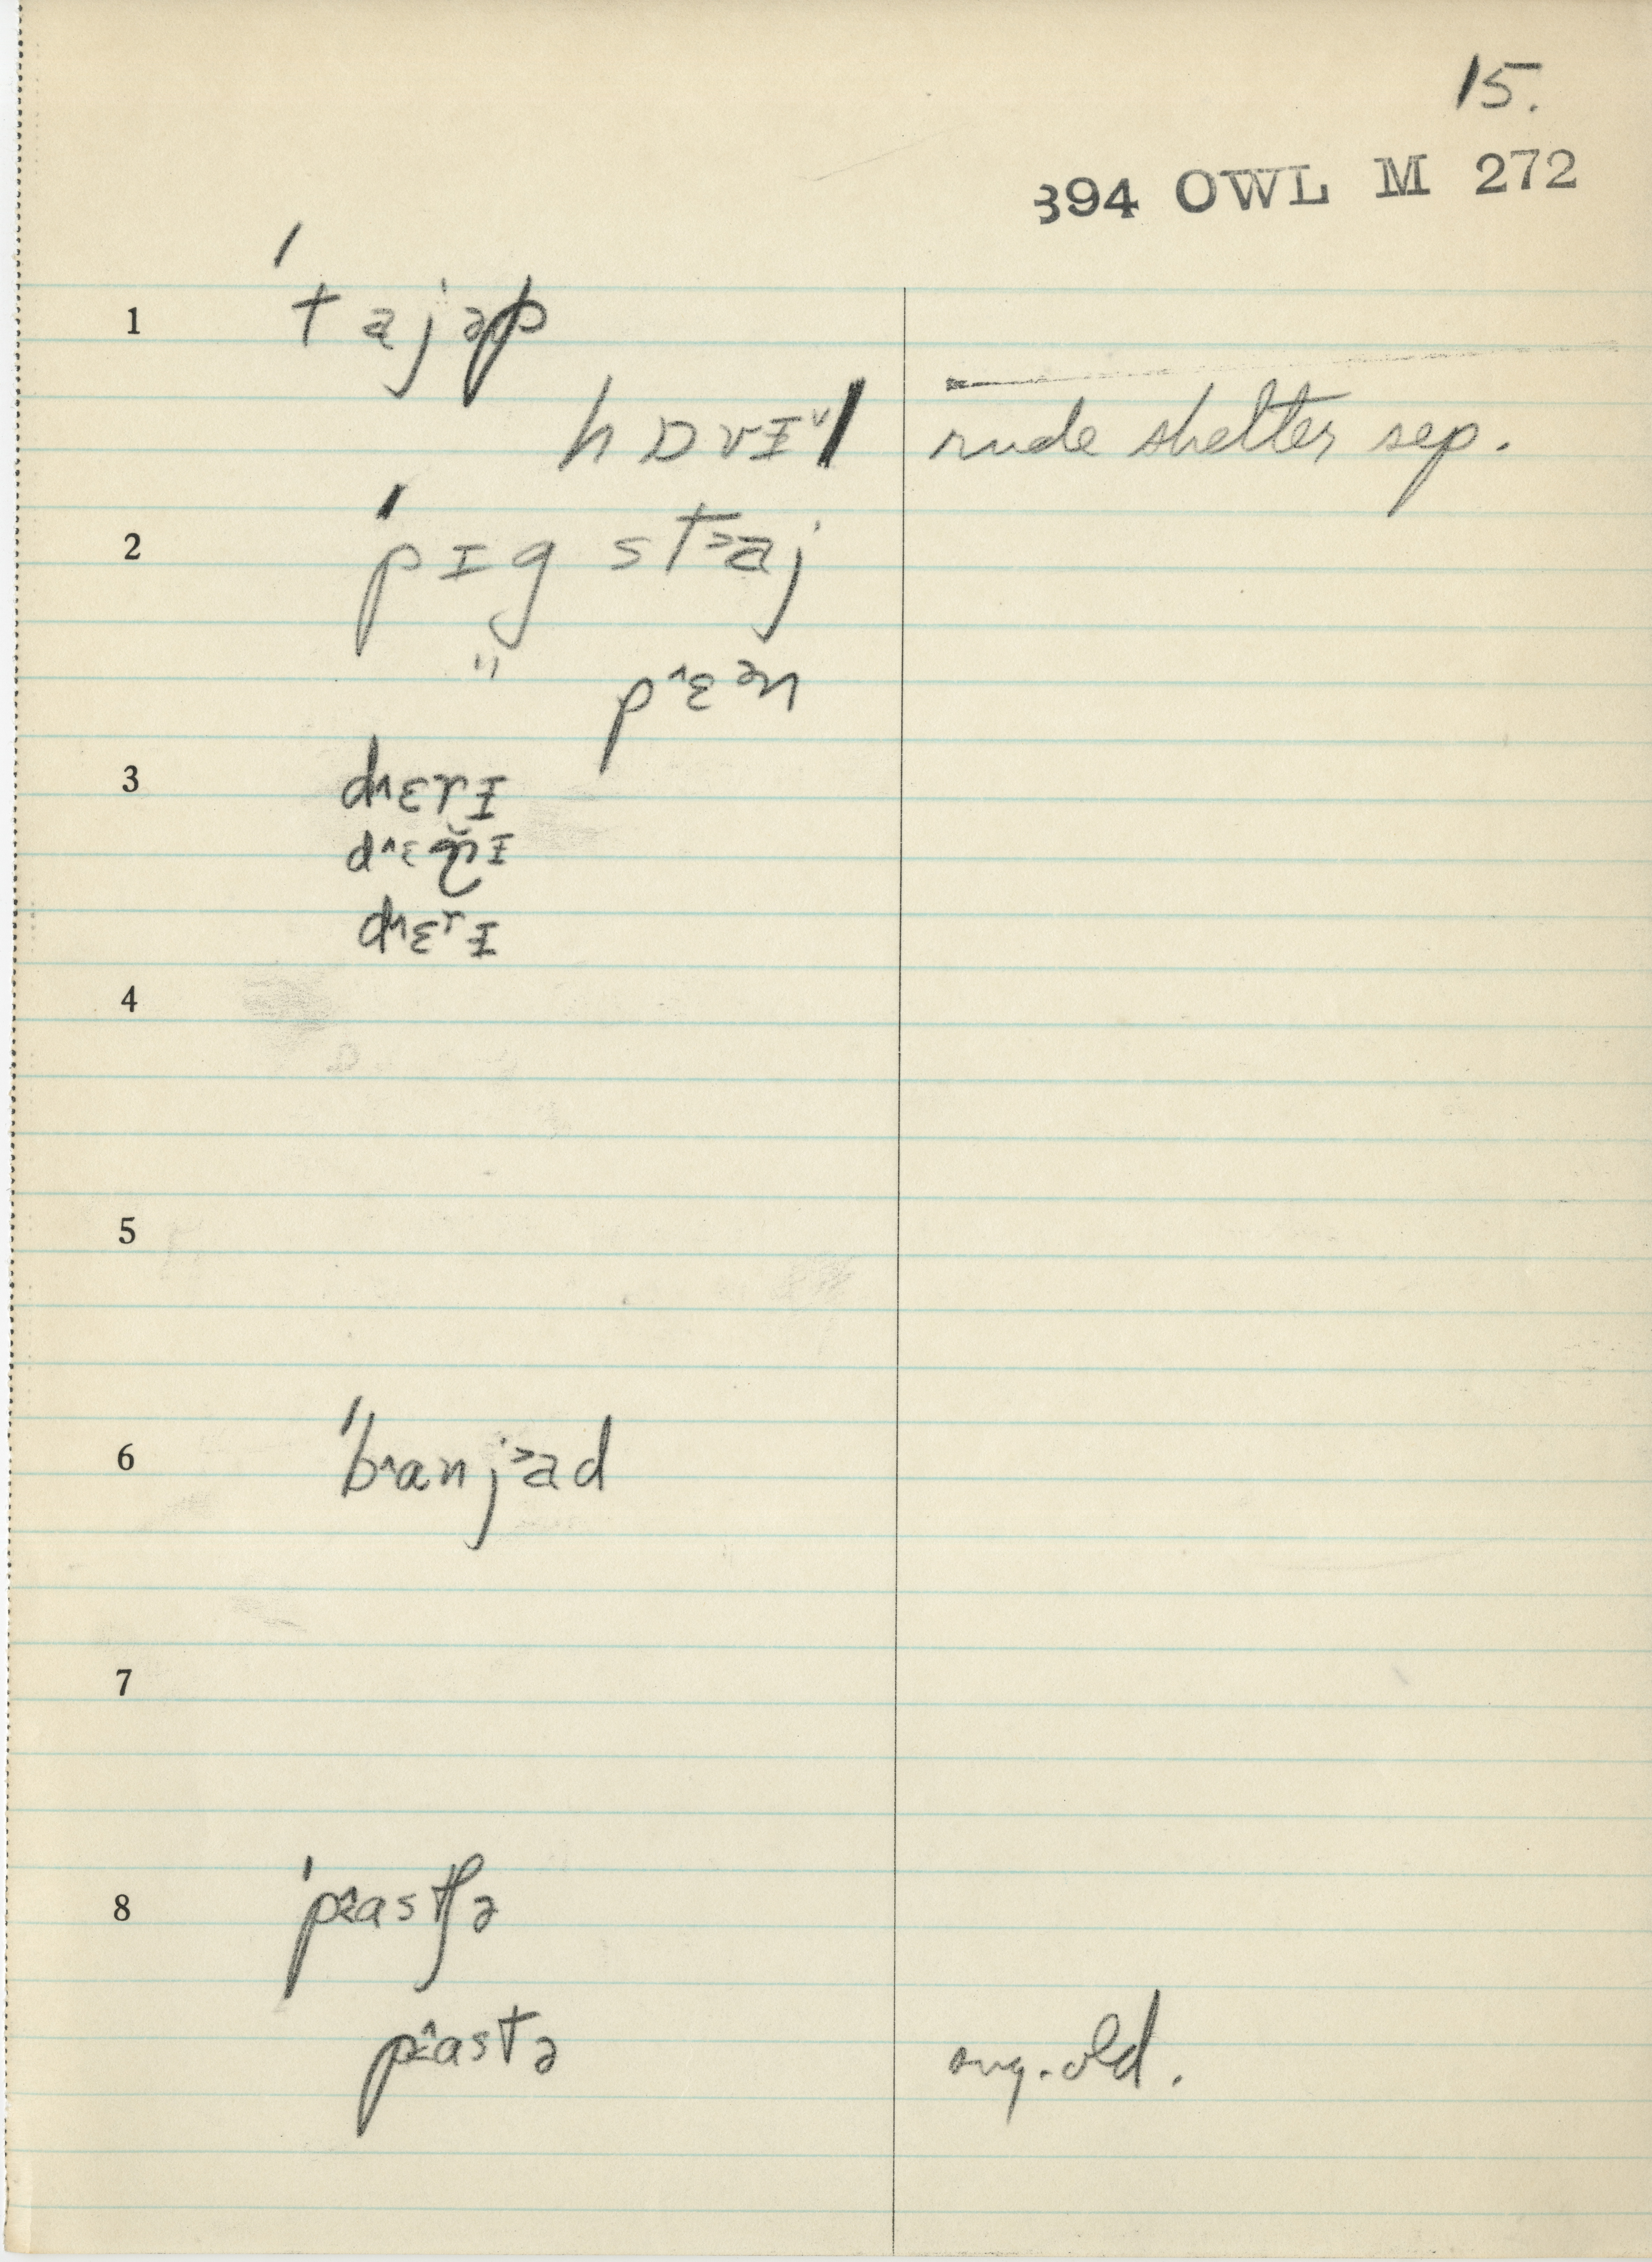 15.
394 OWL M 272
1 ˈtajəp
hɒvɪl rude shelter sep.
2 ˈpɪg staj
" pɛən
3 dɛrɪ
dɛɽɪ
dɛrɪ
4
5
6 ˈbanjad
7
8 ˈpastʃə
pastə sug. old.